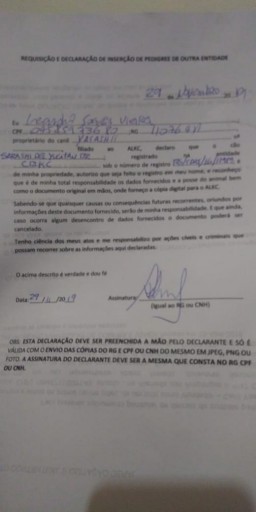 REQUISIÇÃO E DECLARAÇÃO DE INSERÇÃO DE PEDIGREE DE OUTRA ENTIDADE
29 de de 19
Eu
CPF RG
proprietário do canil
filiado ao ALKC, declaro que o cão
registrado na entidade
sob o número de registro
de minha propriedade, autorizo que seja feito o registro em meu nome, e reconheço
que é de minha total responsabilidade os dados fornecidos e a posse do animal bem
como o documento original em mãos, onde forneço a cópia digital para o ALKC.
Sabendo se que quaisquer causas ou consequências futuras recorrentes, oriundos por
informações deste documento fornecido, serão de minha responsabilidade. E que ainda,
caso ocorra algum desencontro de dados fornecidos o documento poderá ser
cancelado.
Tenho ciência dos meus atos e me responsabilizo por ações cíveis e criminais que
possam recorrer sobre as informações aqui declaradas.
O acima descrito é verdade e dou fé
Data 29/11/2019 Assinatura:
(igual ao RG ou CNH)
OBS: ESTA DECLARAÇÃO DEVE SER PREENCHIDA A MÃO PELO DECLARANTE E SÓ É
VÁLIDA COM O ENVIO DAS CÓPIAS DO RG E CPF OU CNH DO MESMO EM JPEG, PNG OU
FOTO. A ASSINATURA DO DECLARANTE DEVE SER A MESMA QUE CONSTA NO RG CPF
OU CNH.